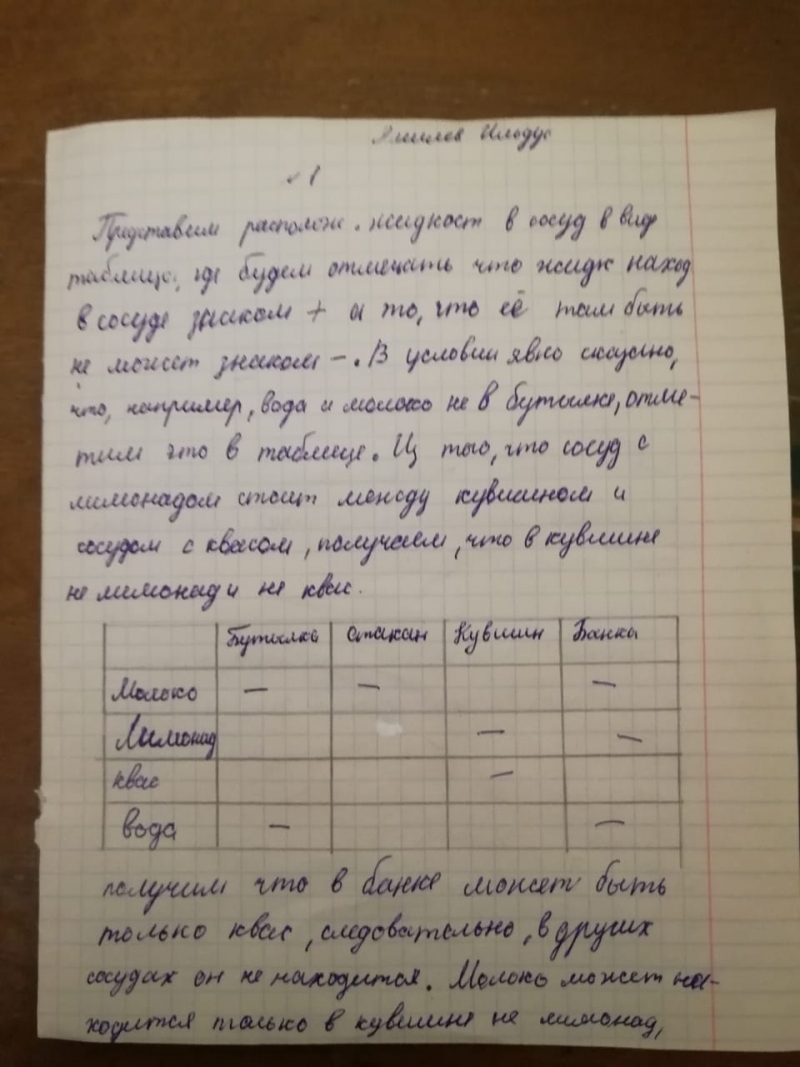 Илодус
1
Представим располож. жидкост в сосуд в виде
таблице, где будем отмечать что жидк наход
в сосуде знаком + а то, что её там быть
не может знаком -. В условии явно сказано,
что, например, вода и молоко не в бутылке, отме-
тим это в таблице. Из того, что сосуд с
лимонадом стоит между кувшином и
сосудом с квасом, получаем, что в кувшине
не лимонад и не квас.
Бутылка Стакан Кувшин Банка
Молоко — — —
Лимонад — —
квас —
вода — —
получим что в банке может быть
только квас, следовательно, в других
сосудах он не находится. Молоко может на-
ходится только в кувшине не лимонад,